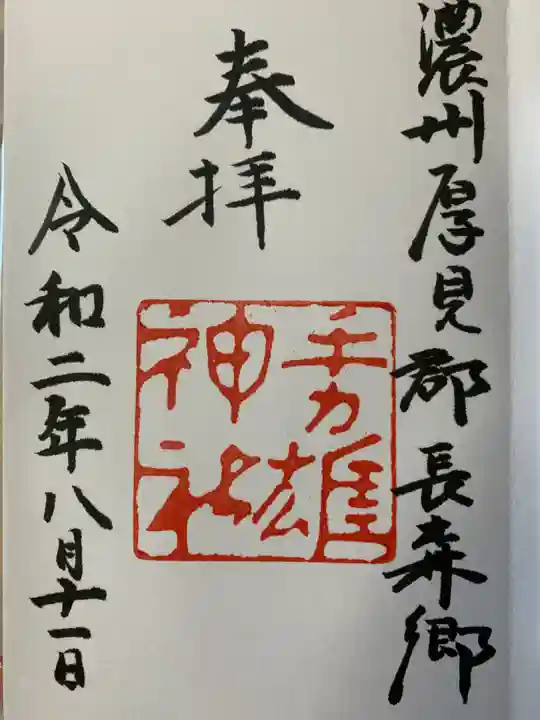 濃州厚見郡長森郷
奉拝
手力雄
神社
令和二年八月十一日